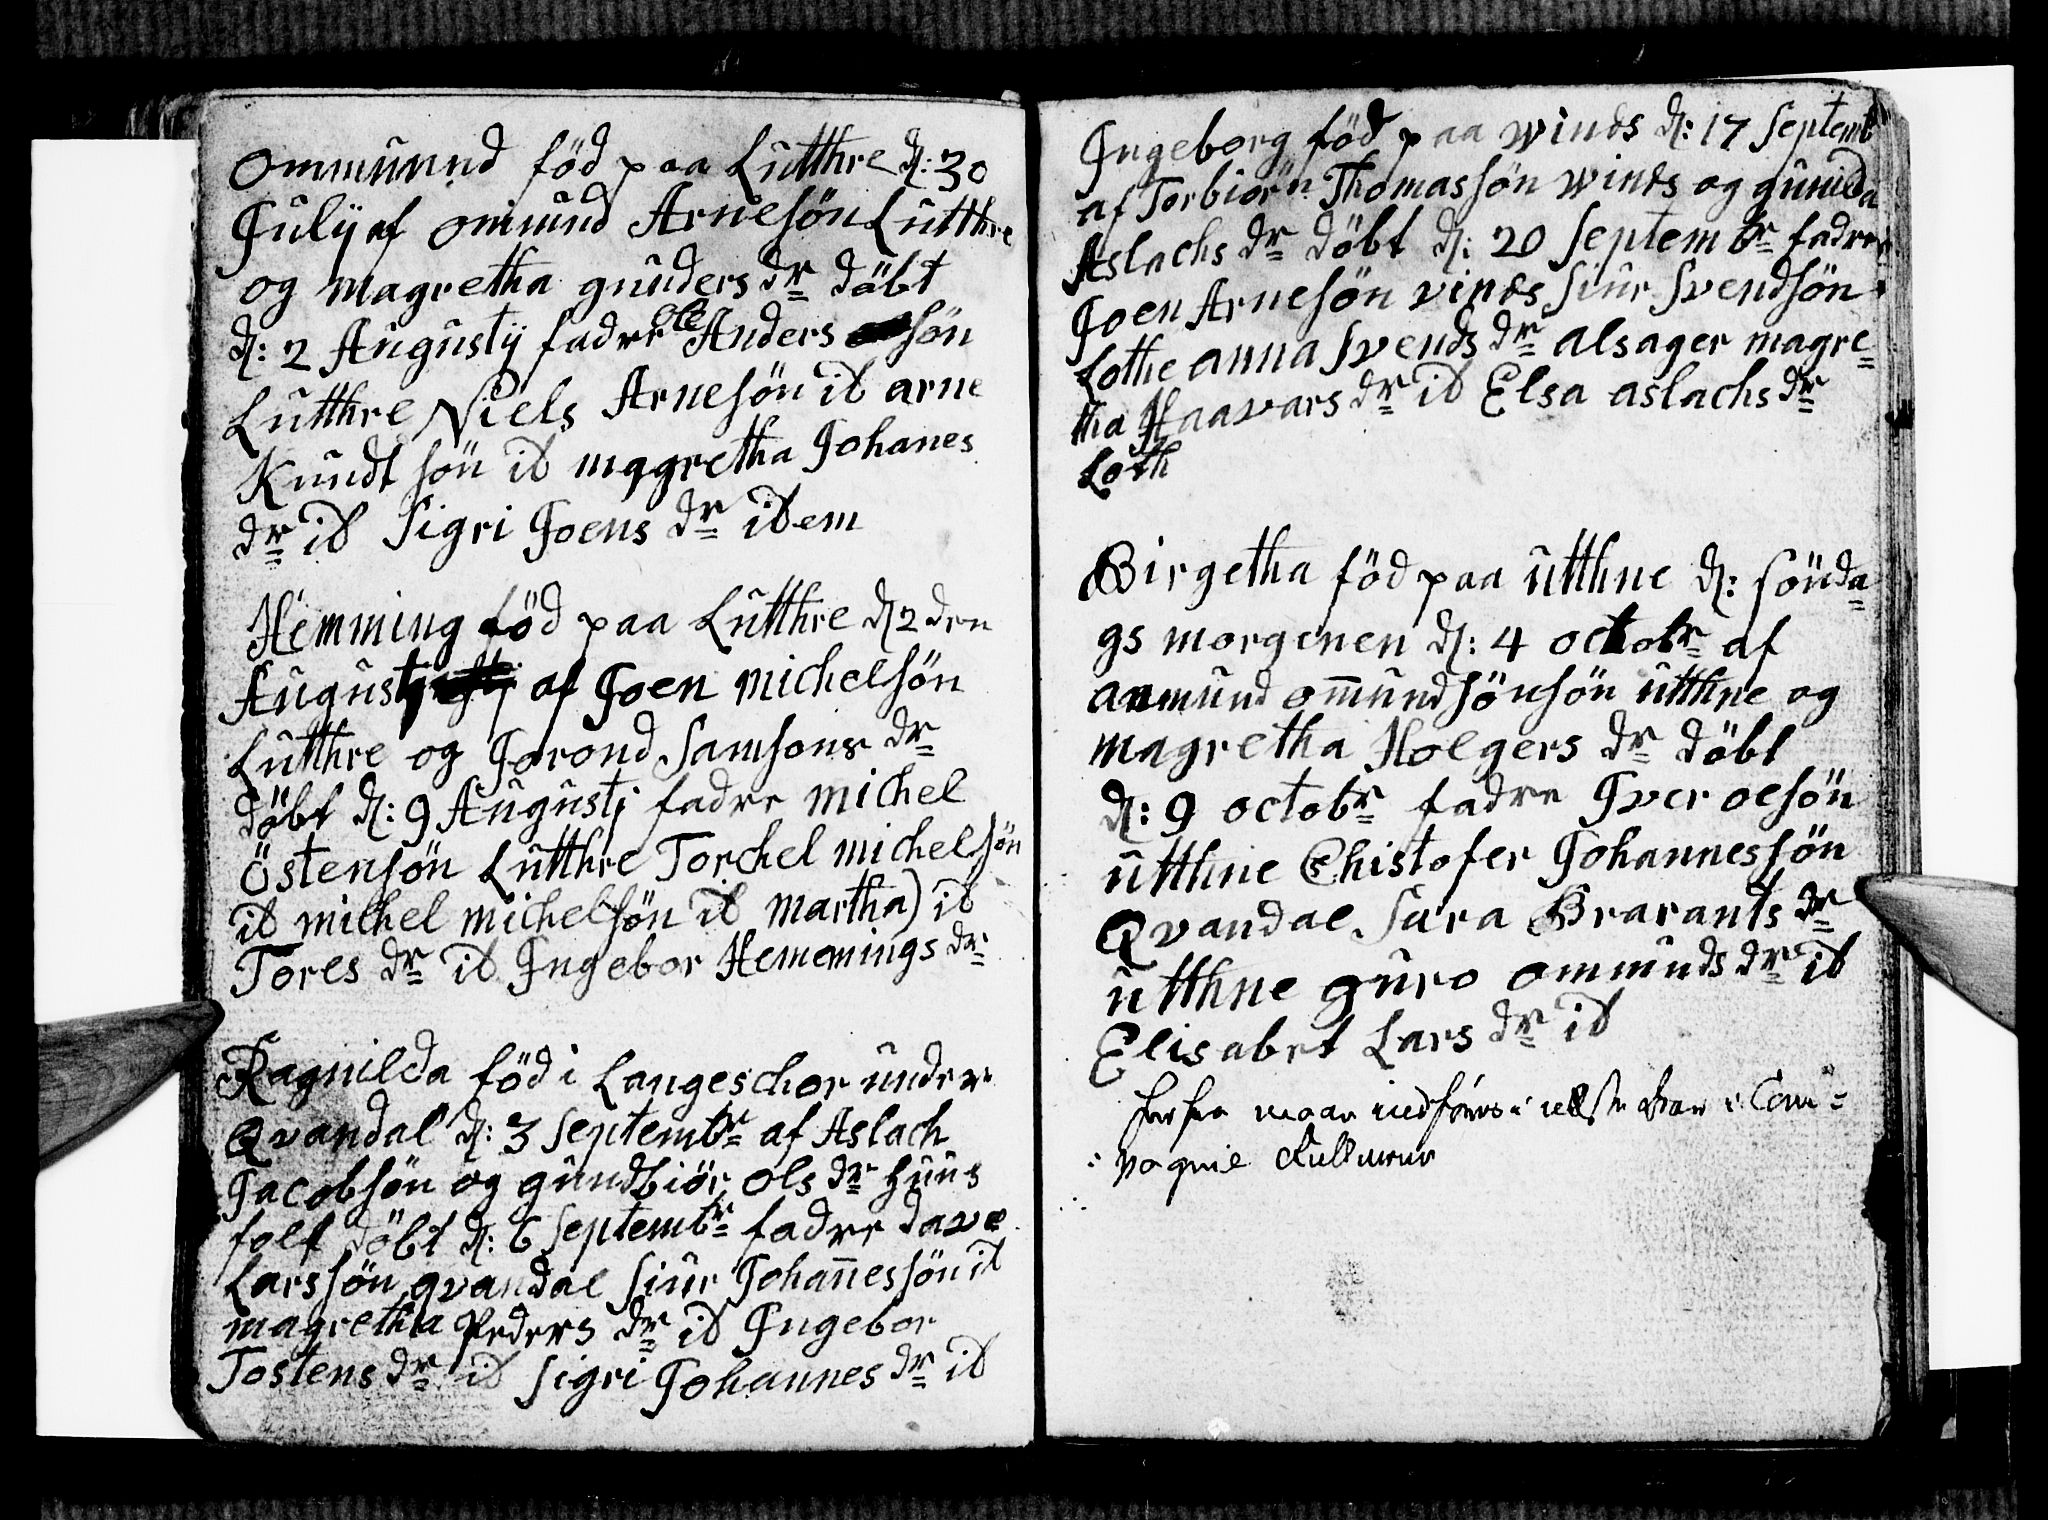 Ommunnd föd paa Lutthre d: 30
Julij af omund Arnesön Lutthre
og magretha gunders dr döbt
d: 2 Augustij fadre ole Anders sön
Lutthre Niels Arnesön id arne
Kundt sön id magretha Johanes
dr id Sigri Joens dr idem
Hemming föd paa Lutthre d 2 den
Augustj af Joen michelsön
Lutthre og Jorond Samsons dr
döbt d: 9 Augustj fadre michel
Östensön Lutthre Torchel michelsön
id michel michelsön id martha) id
Tores dr id Ingebor Hememings dr
Ragnilda föd i Langeschor under
Qvandal d: 3 Septembr af Aslach
Jacobsön og gundbiör ols dr huus
folk döbt d: 6 Septembr fadre dave
Larssön qvandal siur Johannessön id
magretha Peders dr id Ingebor
Tostens dr id Sigri Johannes dr id
Ingeborg föd paa winds d: 17 Septemb
af Torbiörn Thomassön winds og gunilda
Aslachs dr döbt d: 20 Septembr fadre
Joen Arnesön vinds siur Svendsön
Lothe anna Svends dr alsager magre=
tha Haavars dr id Elsa aslachs dr
Loth
Birgetha föd paa utthne d: sönda=
gs morgenen d: 4 octobr af
anmund omundsönsön utthne og
magretha Holgers dr döbt
d: 9 octobr fadre Iver oesön
utthne Chistofer Johannessön
Qvandal Sara Brarants dr
utthne guro ommunds dr id
Elisabet Lars dr id
maae indföres i